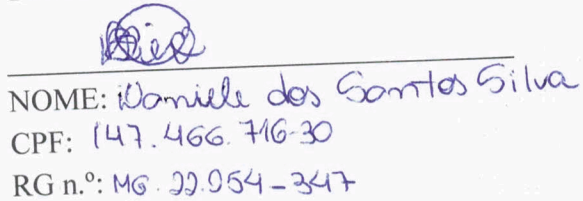 NOME: Daniele dos Santos Silva
CPF: 147.466.716-30
RG n.º: MG. 22.054-347